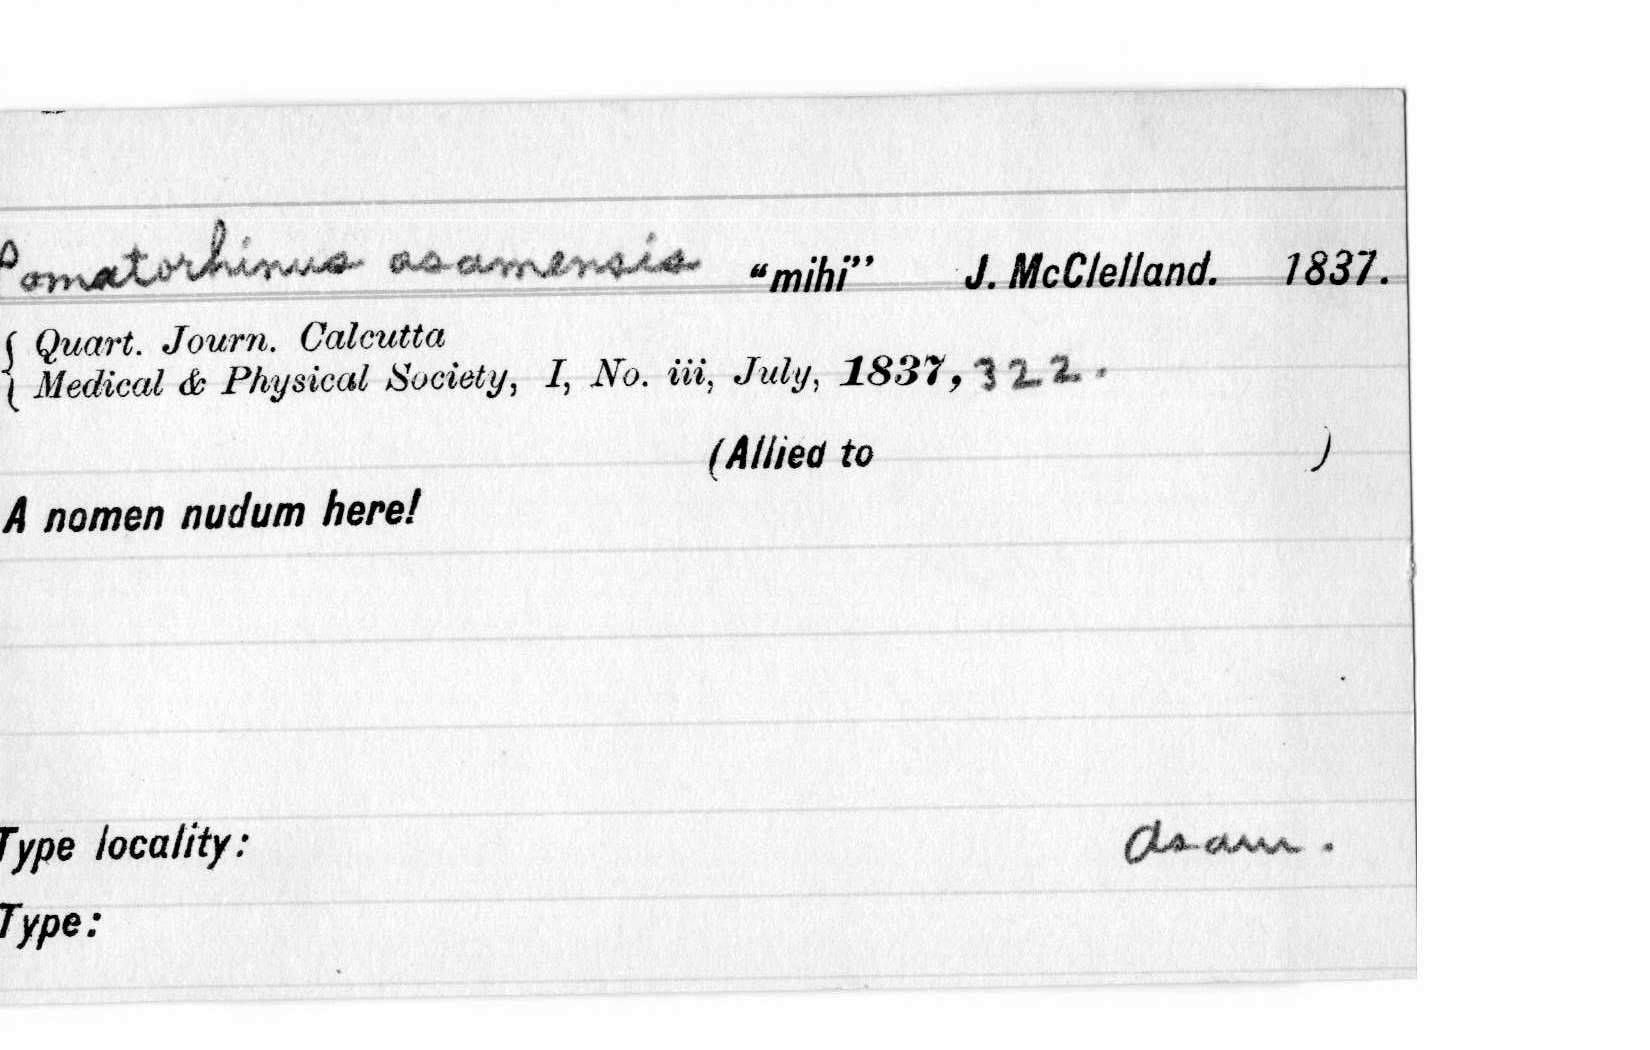 Pomatorhinus asamensis "mihi" J. McClelland. 1837.
{ Quart. Journ. Calcutta
Medical & Physical Society, I, No. iii, July, 1837, 322.
(Allied to )
A nomen nudum here!
Type locality: Asam.
Type: